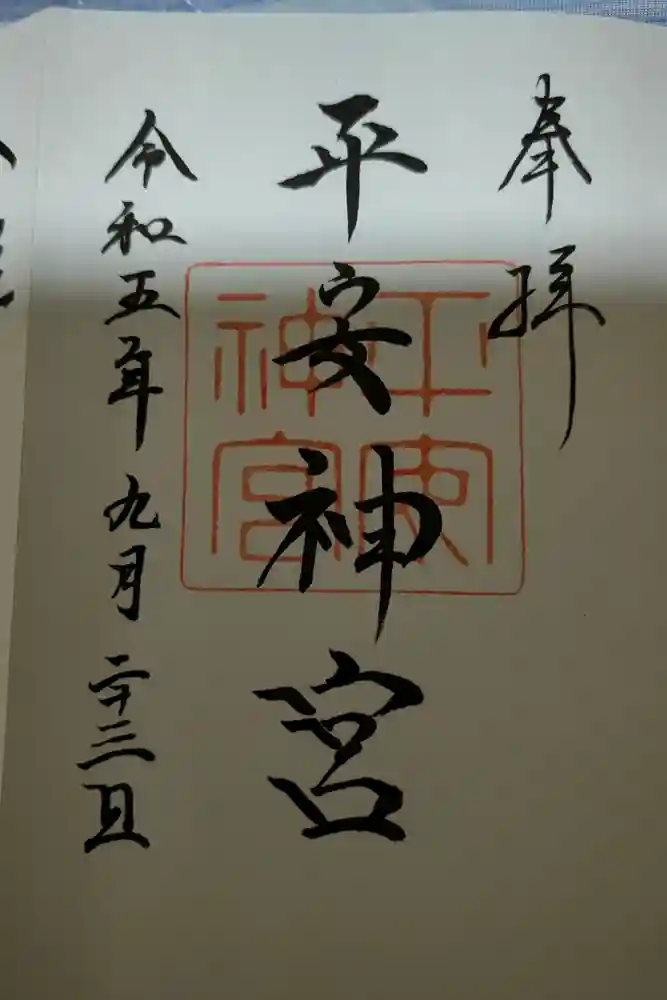 奉拝
平安神宮
平安神宮
令和五年九月二十三日